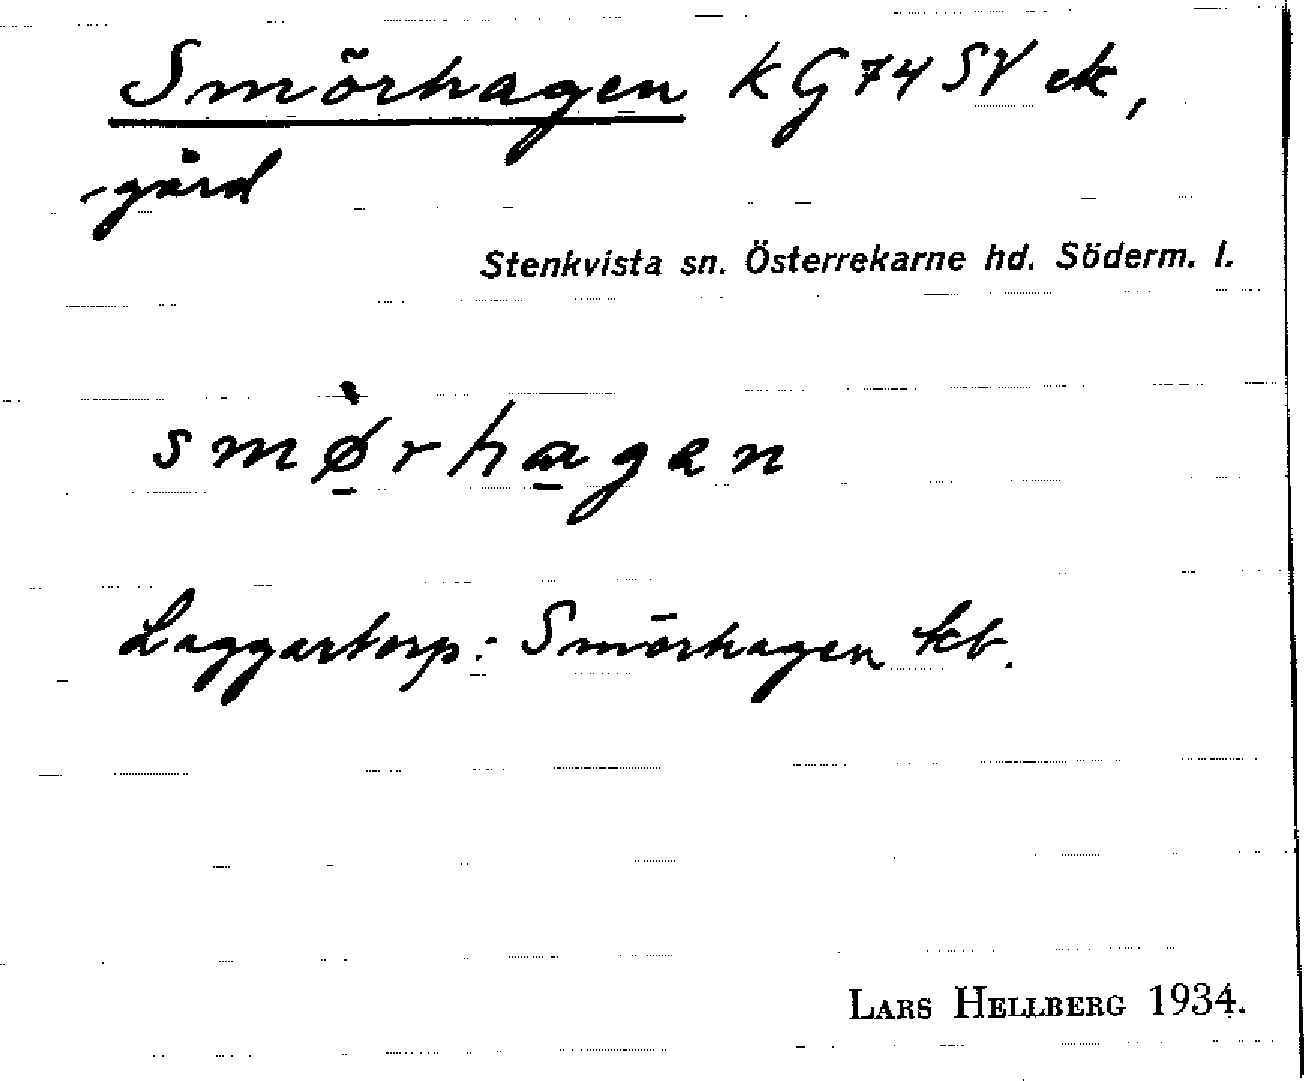 Smörhagen k G 74 SV ek,
-gård
Stenkvista sn. Österrekarne hd. Söderm. l.
smø̠̀rha̠gen
Laggartorp: Smörhagen kb.
LARS HELLBERG 1934.